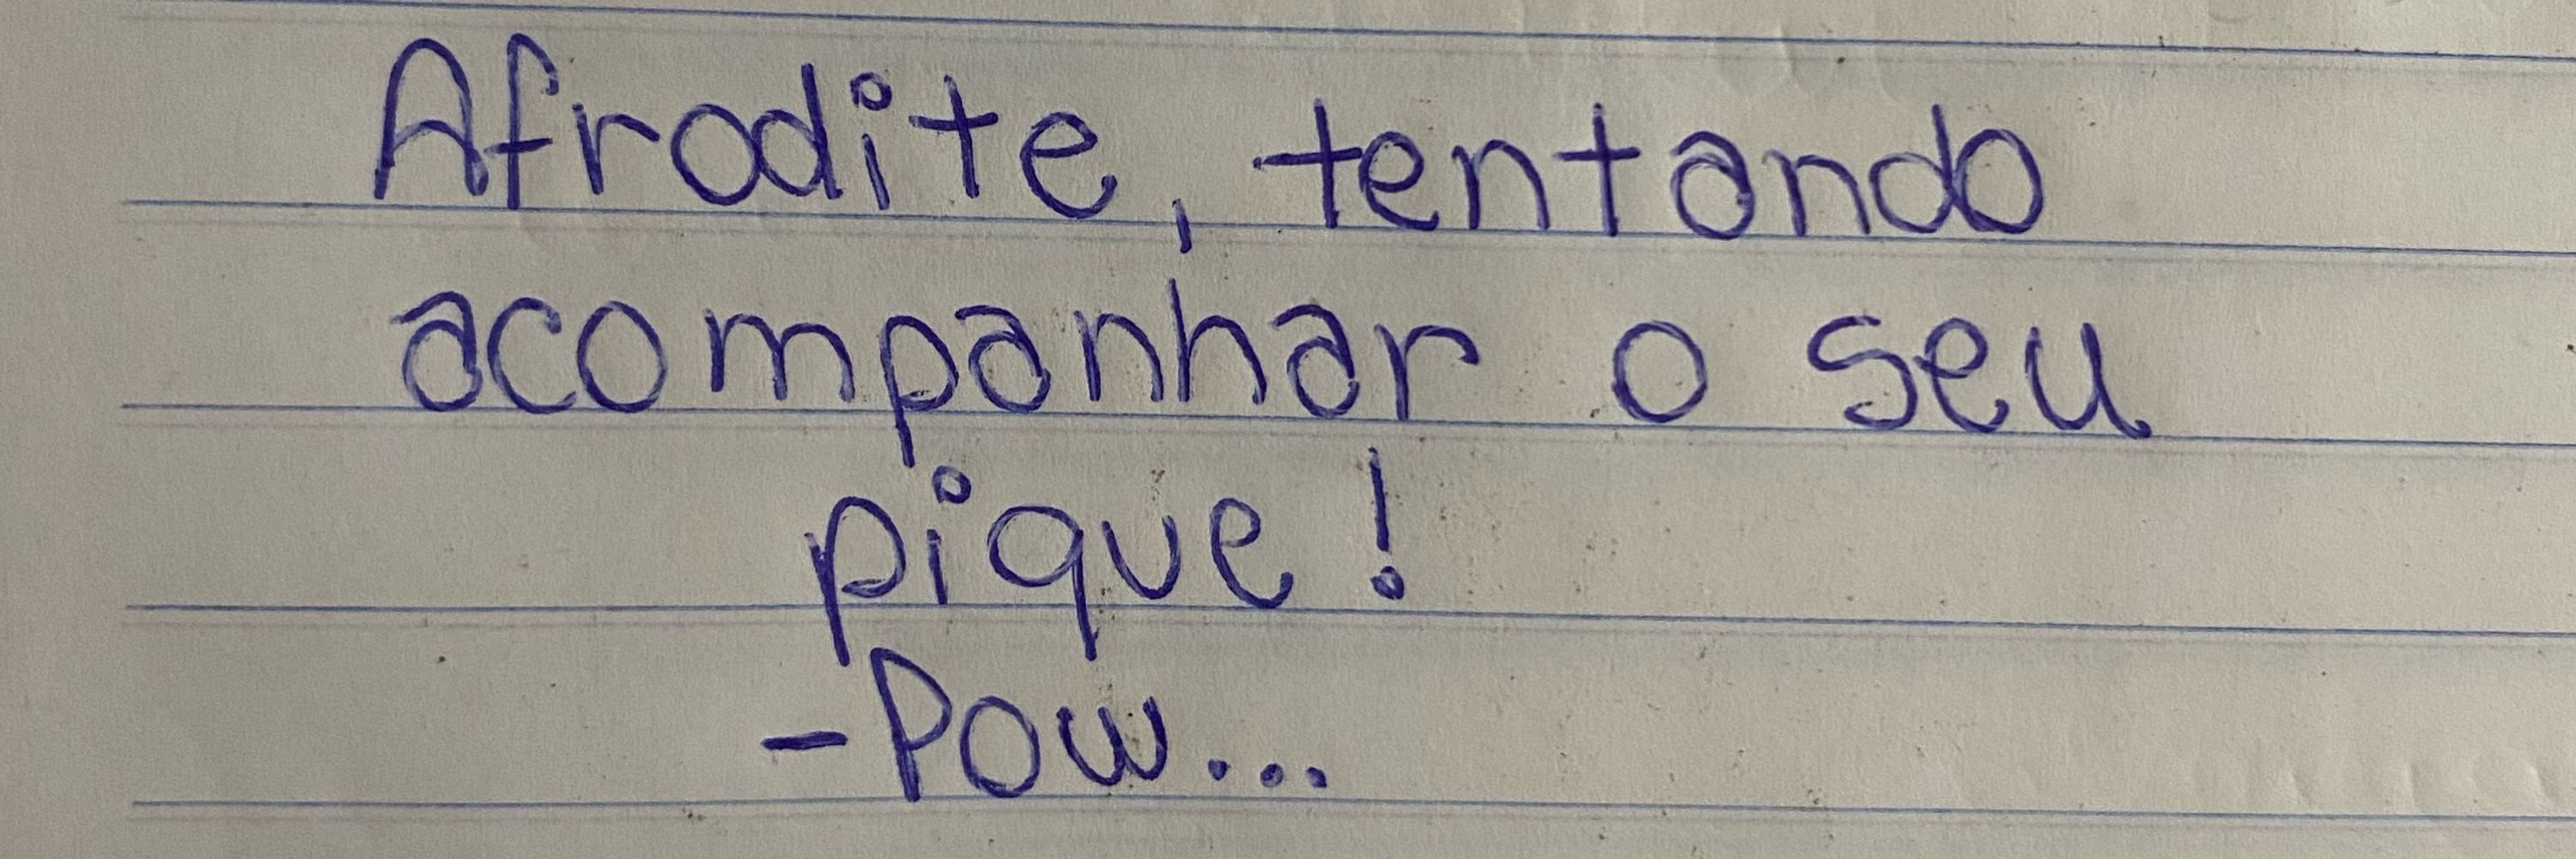 Afrodite, tentando
acompanhar o seu
pique!
-Pow...